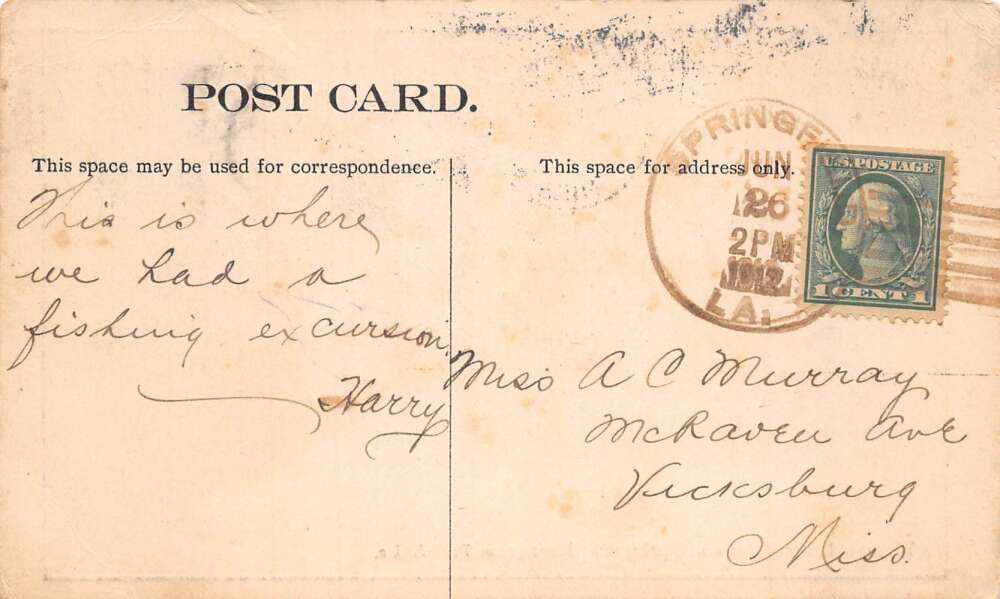 POST CARD.
This space may be used for correspondence.
This is where
we had a
fishing excursion
Harry
This space for address only.
SPRINGF
JUN
26
2 PM
1912
LA.
U.S. POSTAGE
1 CENT 1
Miss A C Murray
McRaven Ave
Vicksburg
Miss.